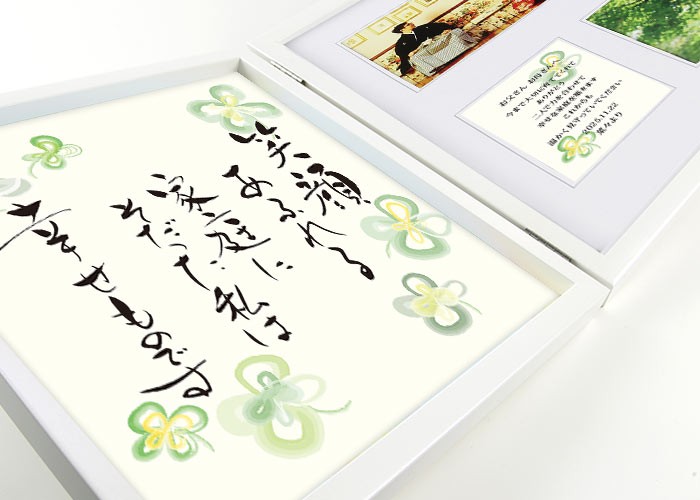 笑顔
あふれる
家庭に
そだった私は
幸せものです
お父さん お母さんへ
今まで大切に育ててくれて
ありがとう
二人で力を合わせて
幸せな家庭を築きます
これからも
温かく見守っていてください
2025.11.22
菜々より